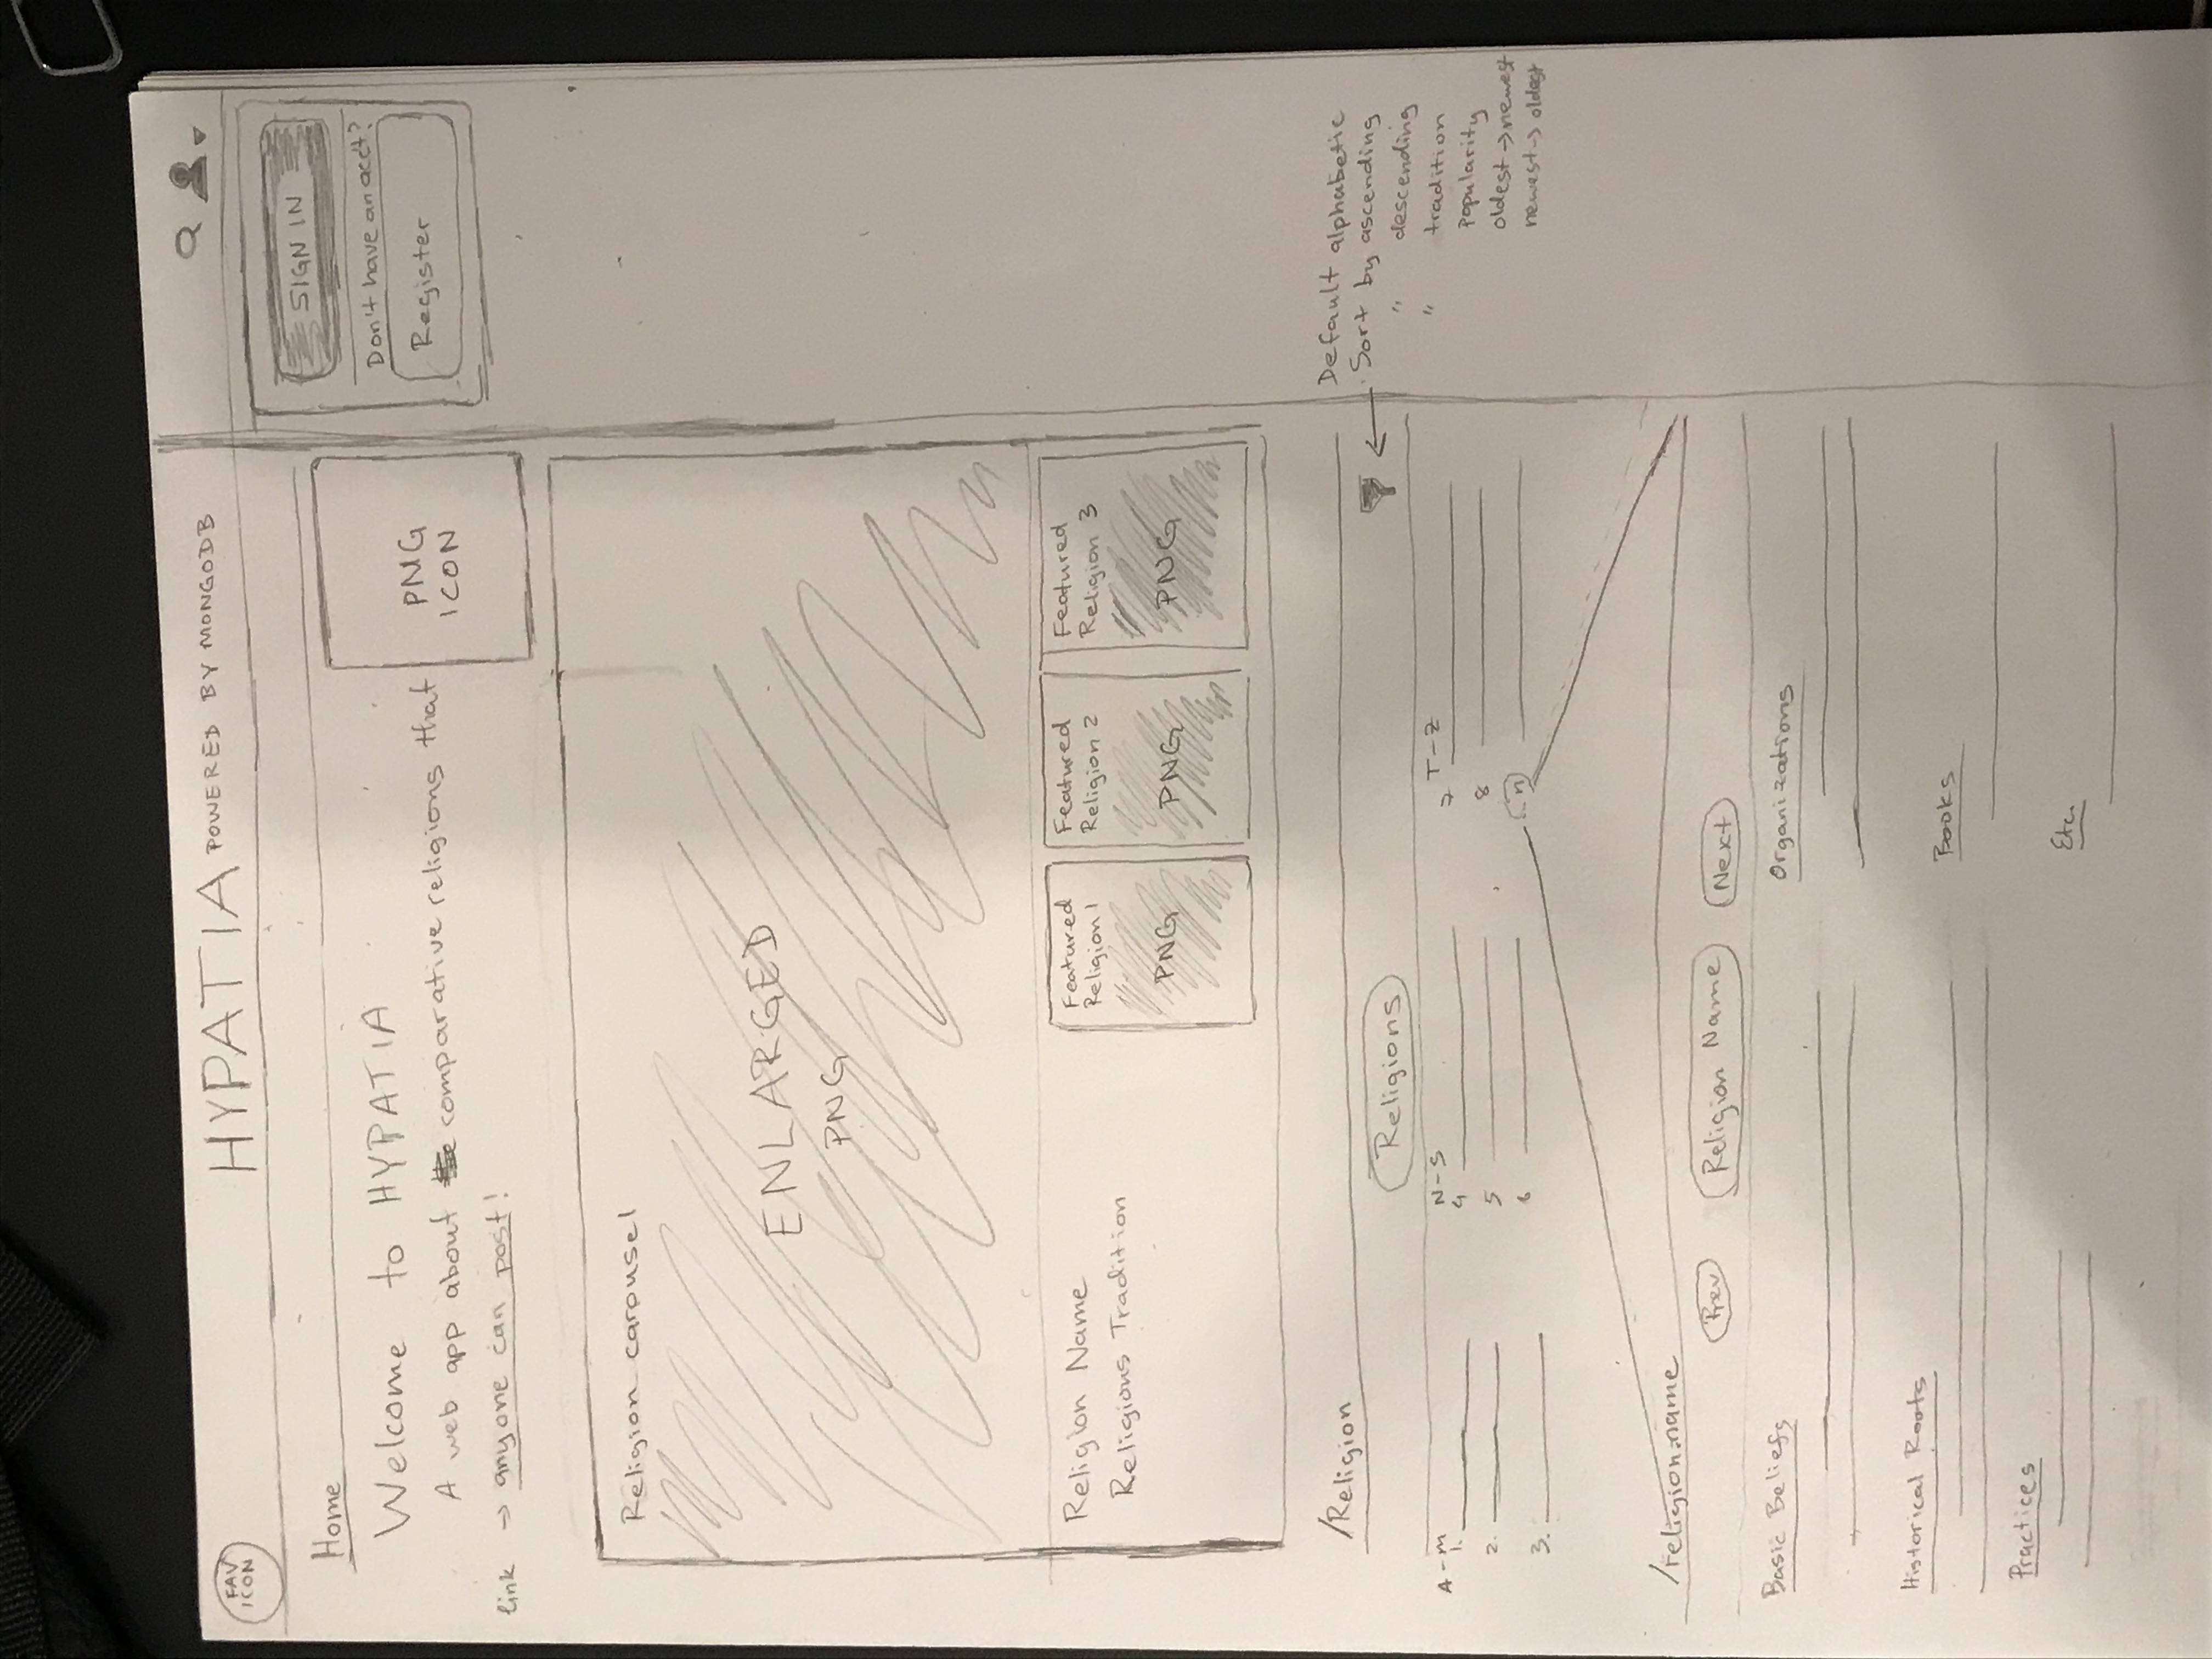 FAV
ICON
HYPATIA POWERED BY MONGODB
SIGN IN
Don't have an acct?
Register
Home
Welcome to HYPATIA
A web app about the comparative religions that
link → anyone can post!
PNG
ICON
Religion carousel
ENLARGED
PNG
Religion Name
Religions Tradition
Featured
Religion 1
PNG
Featured
Religion 2
PNG
Featured
Religion 3
PNG
/Religion
Religions
Default alphabetic
Sort by ascending
" descending
" tradition
popularity
oldest → newest
newest → oldest
A-M
1.
2.
3.
N-S
4
5
6
T-Z
7
8
...n
/religion.name
Prev
Religion Name
Next
Basic Beliefs
Historical Roots
Practices
Organizations
Books
Etc.